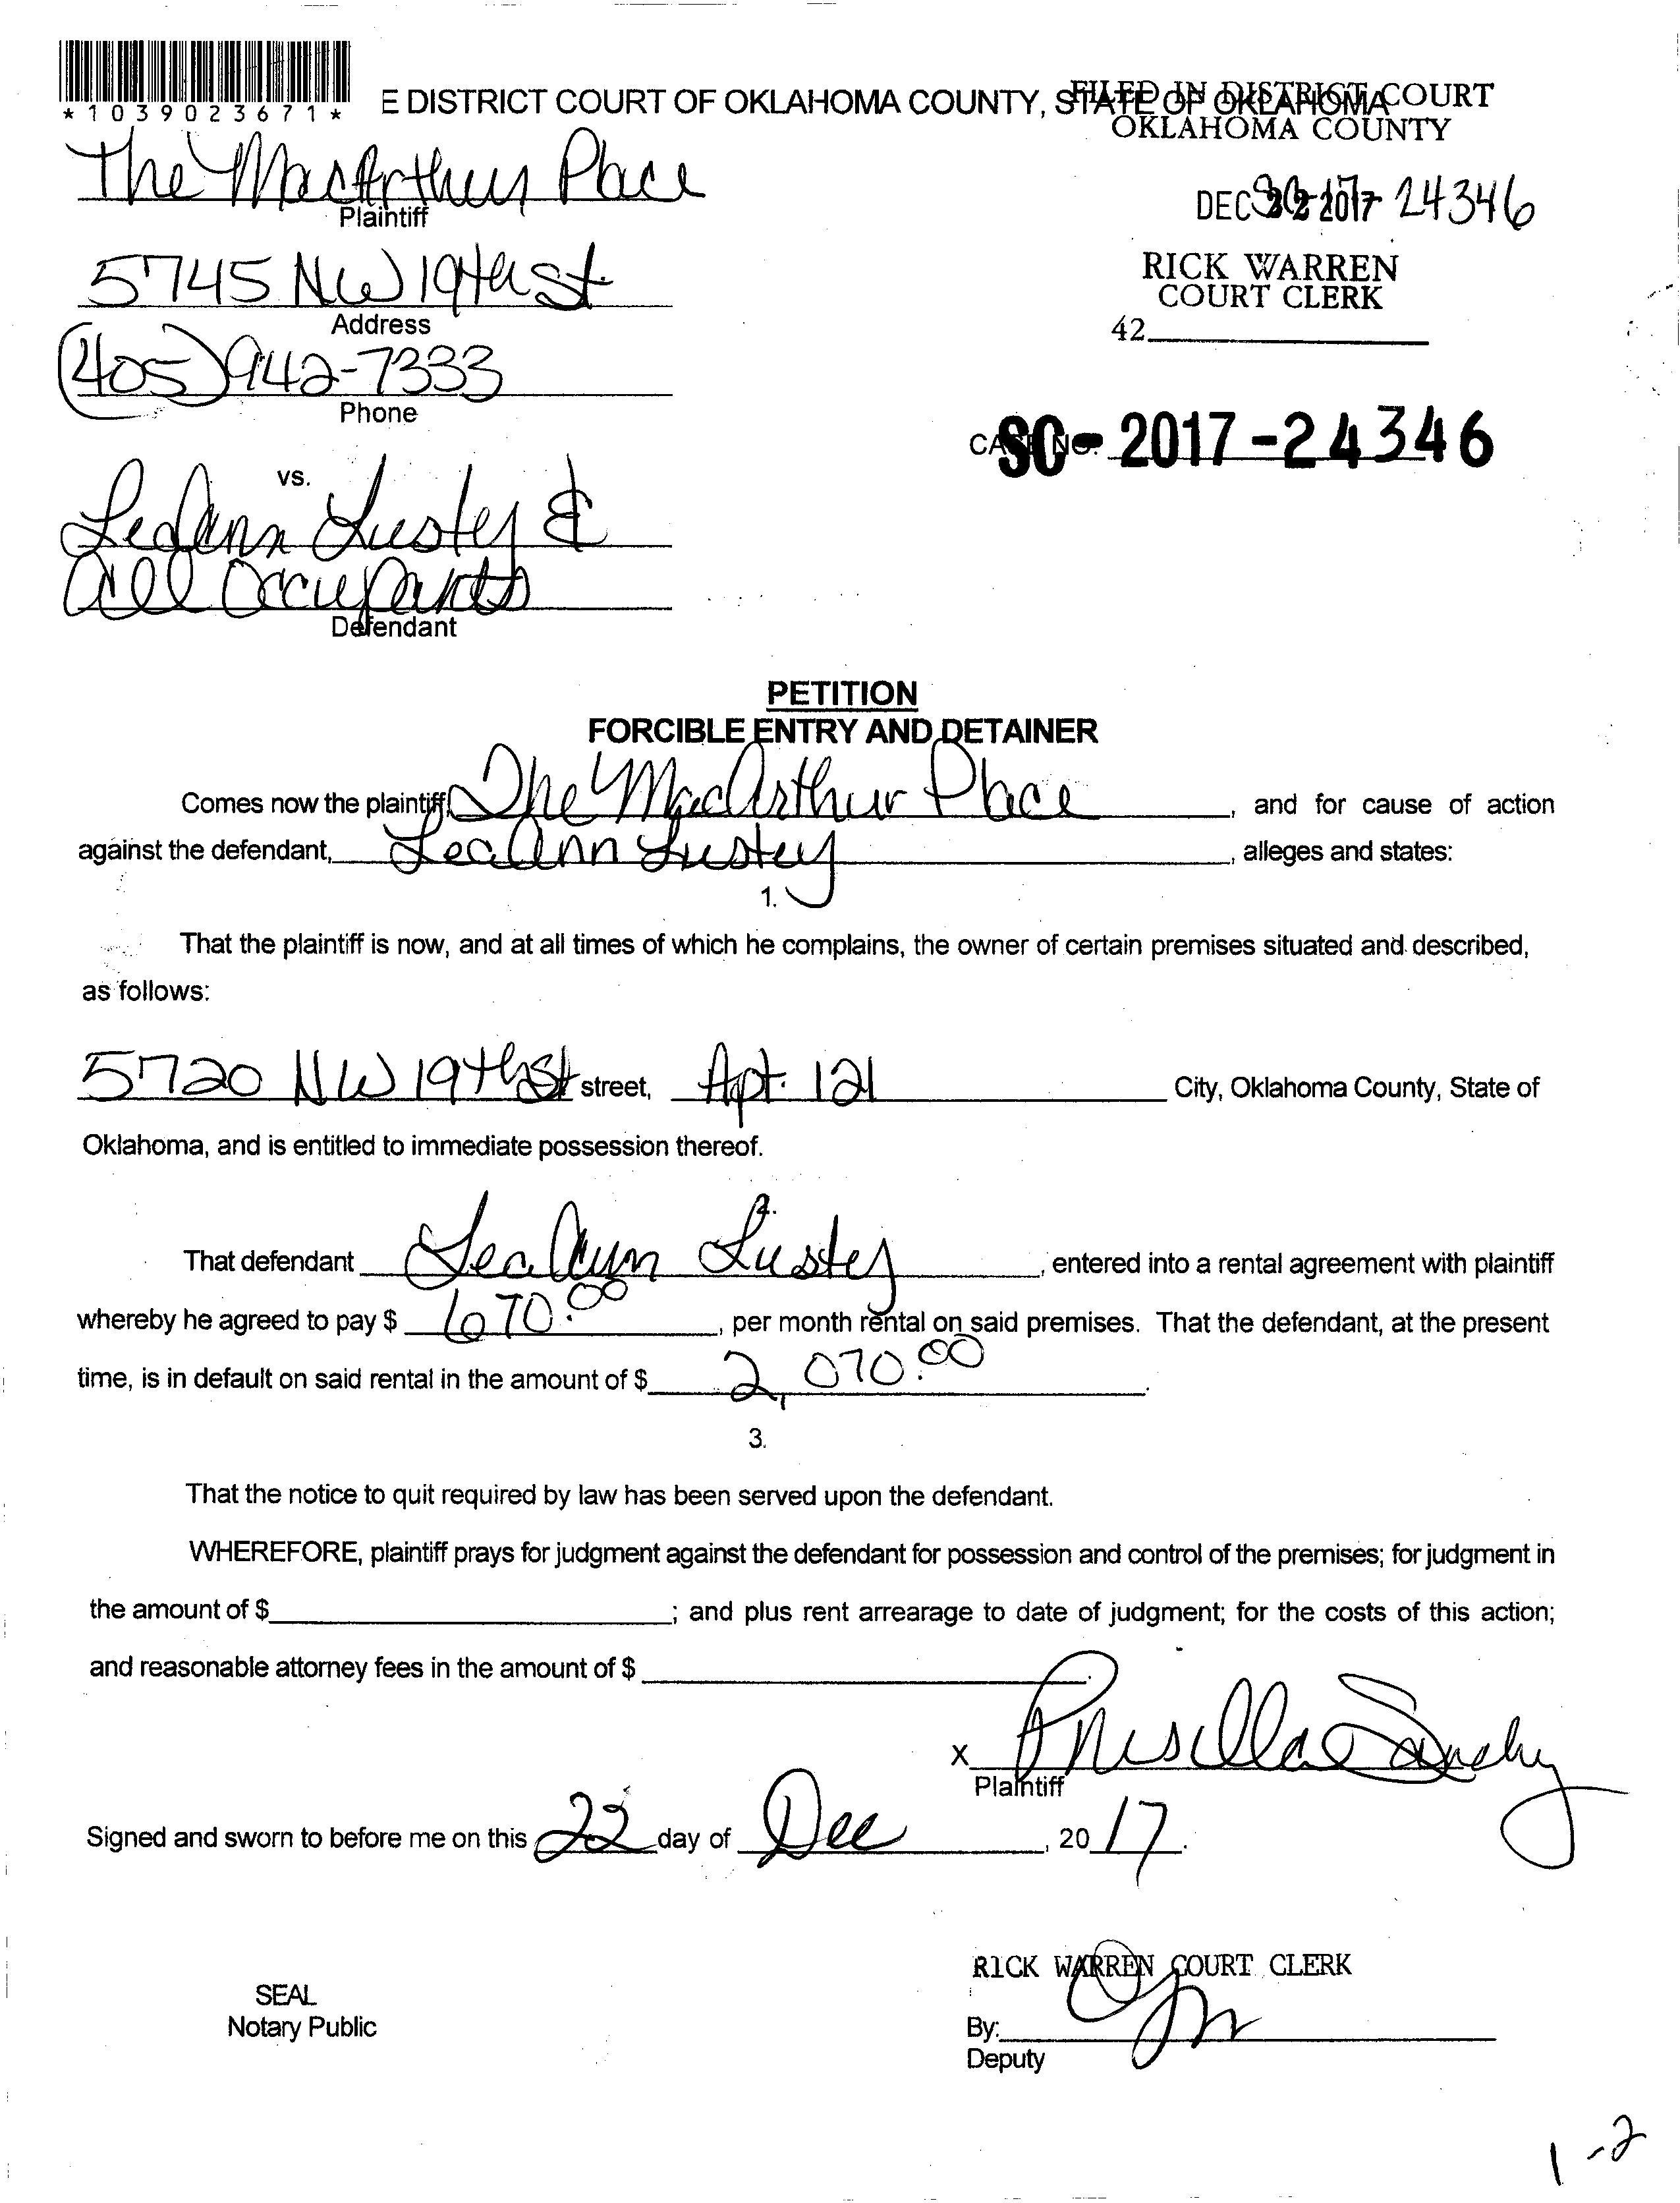 *1039023671*
E DISTRICT COURT OF OKLAHOMA COUNTY, STATE OF OKLAHOMA
FILED IN DISTRICT COURT
OKLAHOMA COUNTY
The MacArthur Place
Plaintiff
DEC 22 2017 24346
5745 NW 19th St.
Address
RICK WARREN
COURT CLERK
42
(405) 942-7333
Phone
CASE NO. SC-2017-24346
vs.
LeaAnn Lustey &
all Occupants
Defendant
PETITION
FORCIBLE ENTRY AND DETAINER
Comes now the plaintiff, The MacArthur Place, and for cause of action
against the defendant, LeaAnn Lustey, alleges and states:
1.
That the plaintiff is now, and at all times of which he complains, the owner of certain premises situated and described,
as follows:
5720 NW 19th St street, Apt. 121 City, Oklahoma County, State of
Oklahoma, and is entitled to immediate possession thereof.
2.
That defendant LeaAnn Lustey, entered into a rental agreement with plaintiff
whereby he agreed to pay $ 670.00, per month rental on said premises. That the defendant, at the present
time, is in default on said rental in the amount of $ 2,070.00.
3.
That the notice to quit required by law has been served upon the defendant.
WHEREFORE, plaintiff prays for judgment against the defendant for possession and control of the premises; for judgment in
the amount of $ ; and plus rent arrearage to date of judgment; for the costs of this action;
and reasonable attorney fees in the amount of $ .
X Priscilla
Plaintiff
Signed and sworn to before me on this 22 day of Dec, 2017.
RICK WARREN COURT CLERK
SEAL
Notary Public
By:
Deputy
1-2